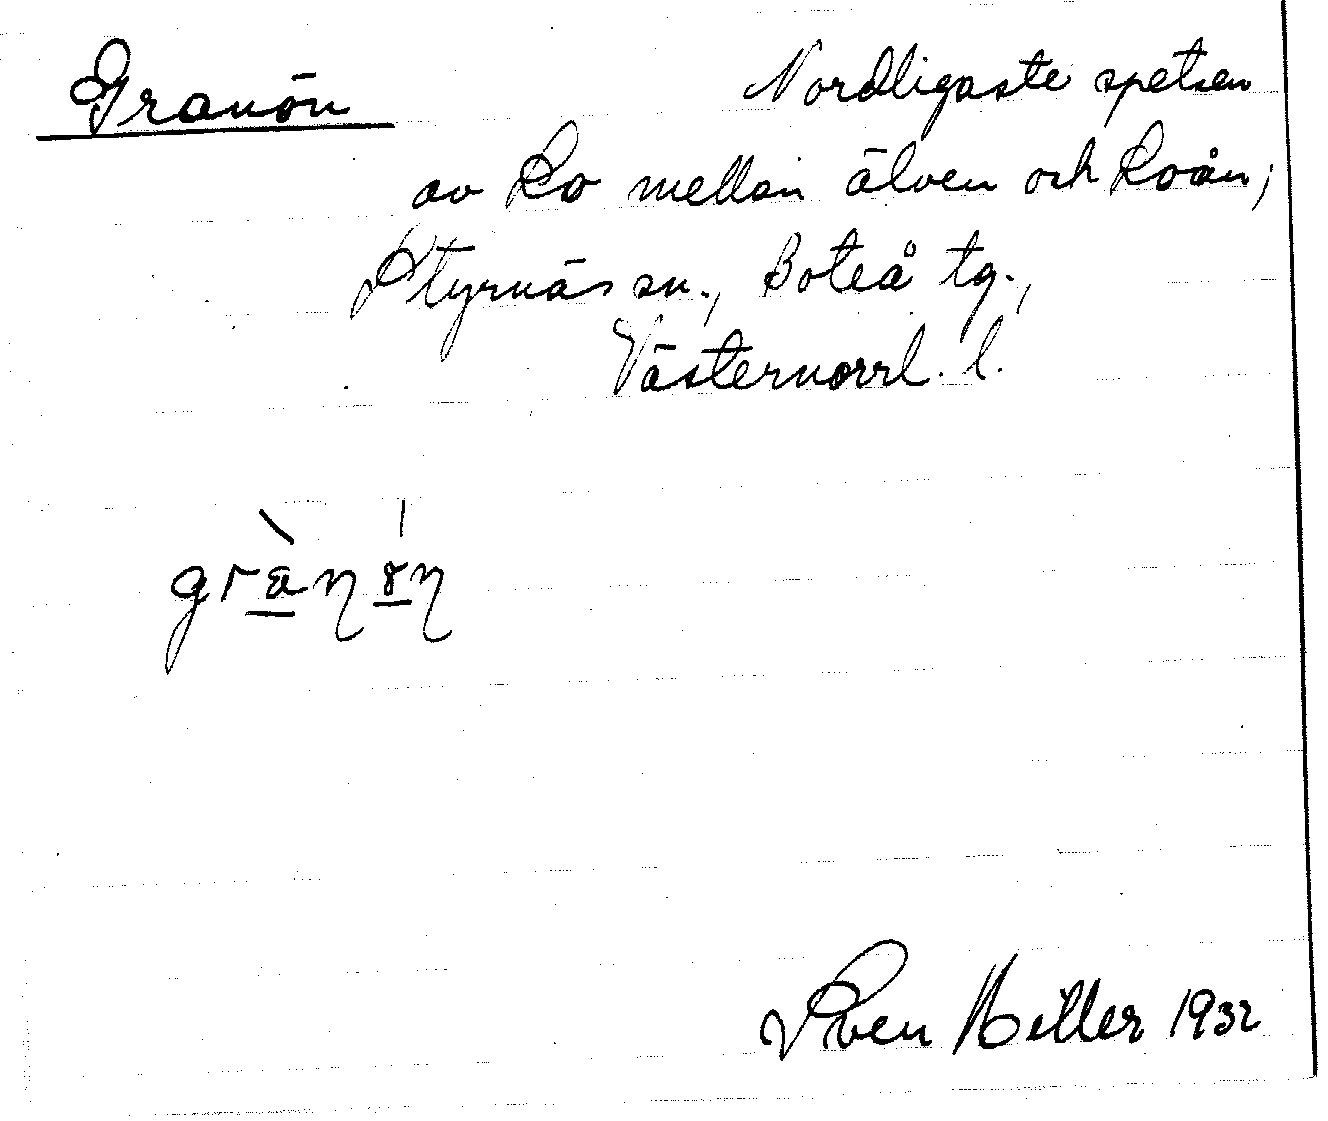 Granön
Nordligaste spetsen
av Lo mellan älven och Loån;
Styrnäs sn., Boteå tg.,
Västernorrl. l.
Sven Hiller 1932